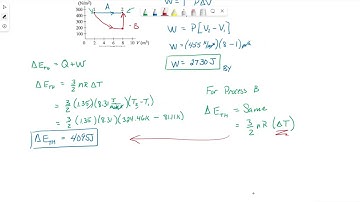 (N/m²)
A
B
V (m³)
0 2 4 6 8 10
W = P∆V
W = P[V₂ - V₁]
W = (455 N/m²)(8-1) m³
W = 2730 J
BY
∆E_TH = Q + W
∆E_TH = 3/2 nR ∆T
= 3/2 (.135)(8.31 J/mol·K)(T₂-T₁)
= 3/2 (.135)(8.31)(324.46K - 81.11K)
∆E_TH = 4095J
For Process B
∆E_TH = Same
= 3/2 nR (∆T)